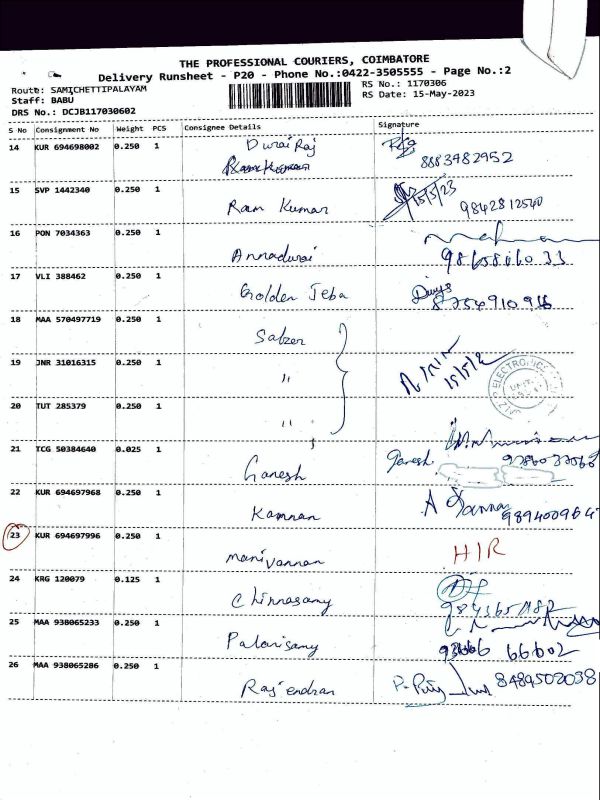 THE PROFESSIONAL COURIERS, COIMBATORE
Delivery Runsheet - P20 - Phone No.:0422-3505555 - Page No.:2
Route: SAMICHETTIPALAYAM
RS No.: 1170306
Staff: BABU
RS Date: 15-May-2023
DRS No.: DCJB117030602
S No Consignment No Weight PCS Consignee Details Signature
14 KUR 694698002 0.250 1 Durai Raj
8883482952
15 SVP 1442340 0.250 1 Ram Kumar 15/5/23
9842812540
16 PON 7034363 0.250 1 Annadurai
17 VLI 388462 0.250 1 Golden Jeba
18 MAA 570497719 0.250 1 Salzer
19 JNR 31016315 0.250 1 "
20 TUT 285379 0.250 1 "
21 TCG 50384640 0.025 1 Ganesh Ganesh
22 KUR 694697968 0.250 1 Kannan
23 KUR 694697996 0.250 1 Manivannan HIR
24 KRG 120079 0.125 1 Chinnasamy
25 MAA 938065233 0.250 1 Palanisamy 66602
26 MAA 938065286 0.250 1 Rajendran 8489502038